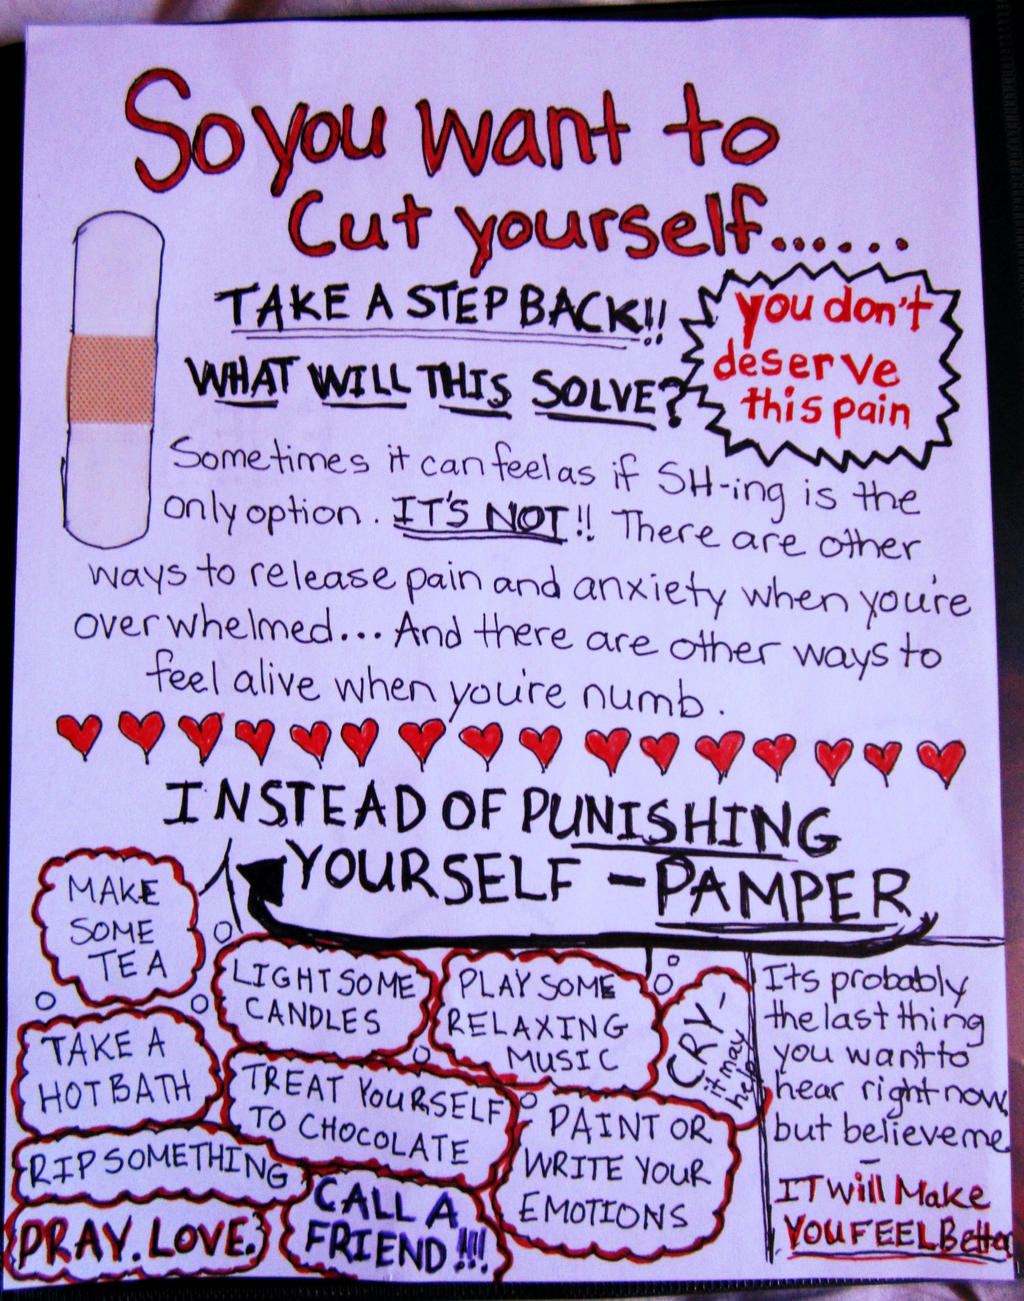 So you want to
Cut yourself......
TAKE A STEP BACK!!
WHAT WILL THIS SOLVE?
you don't
deserve
this pain
Sometimes it can feel as if SH-ing is the
only option. IT'S NOT!! There are other
ways to release pain and anxiety when you're
overwhelmed... And there are other ways to
feel alive when you're numb.
INSTEAD OF PUNISHING
YOURSELF - PAMPER
MAKE
SOME
TEA
LIGHT SOME
CANDLES
PLAY SOME
RELAXING
MUSIC
CRY-
it may
help
TAKE A
HOT BATH
TREAT YOURSELF
TO CHOCOLATE
PAINT OR
WRITE YOUR
EMOTIONS
RIP SOMETHING
PRAY. LOVE.
CALL A
FRIEND!!!
Its probably
the last thing
you want to
hear right now,
but believe me
-
IT will Make
YOU FEEL Better